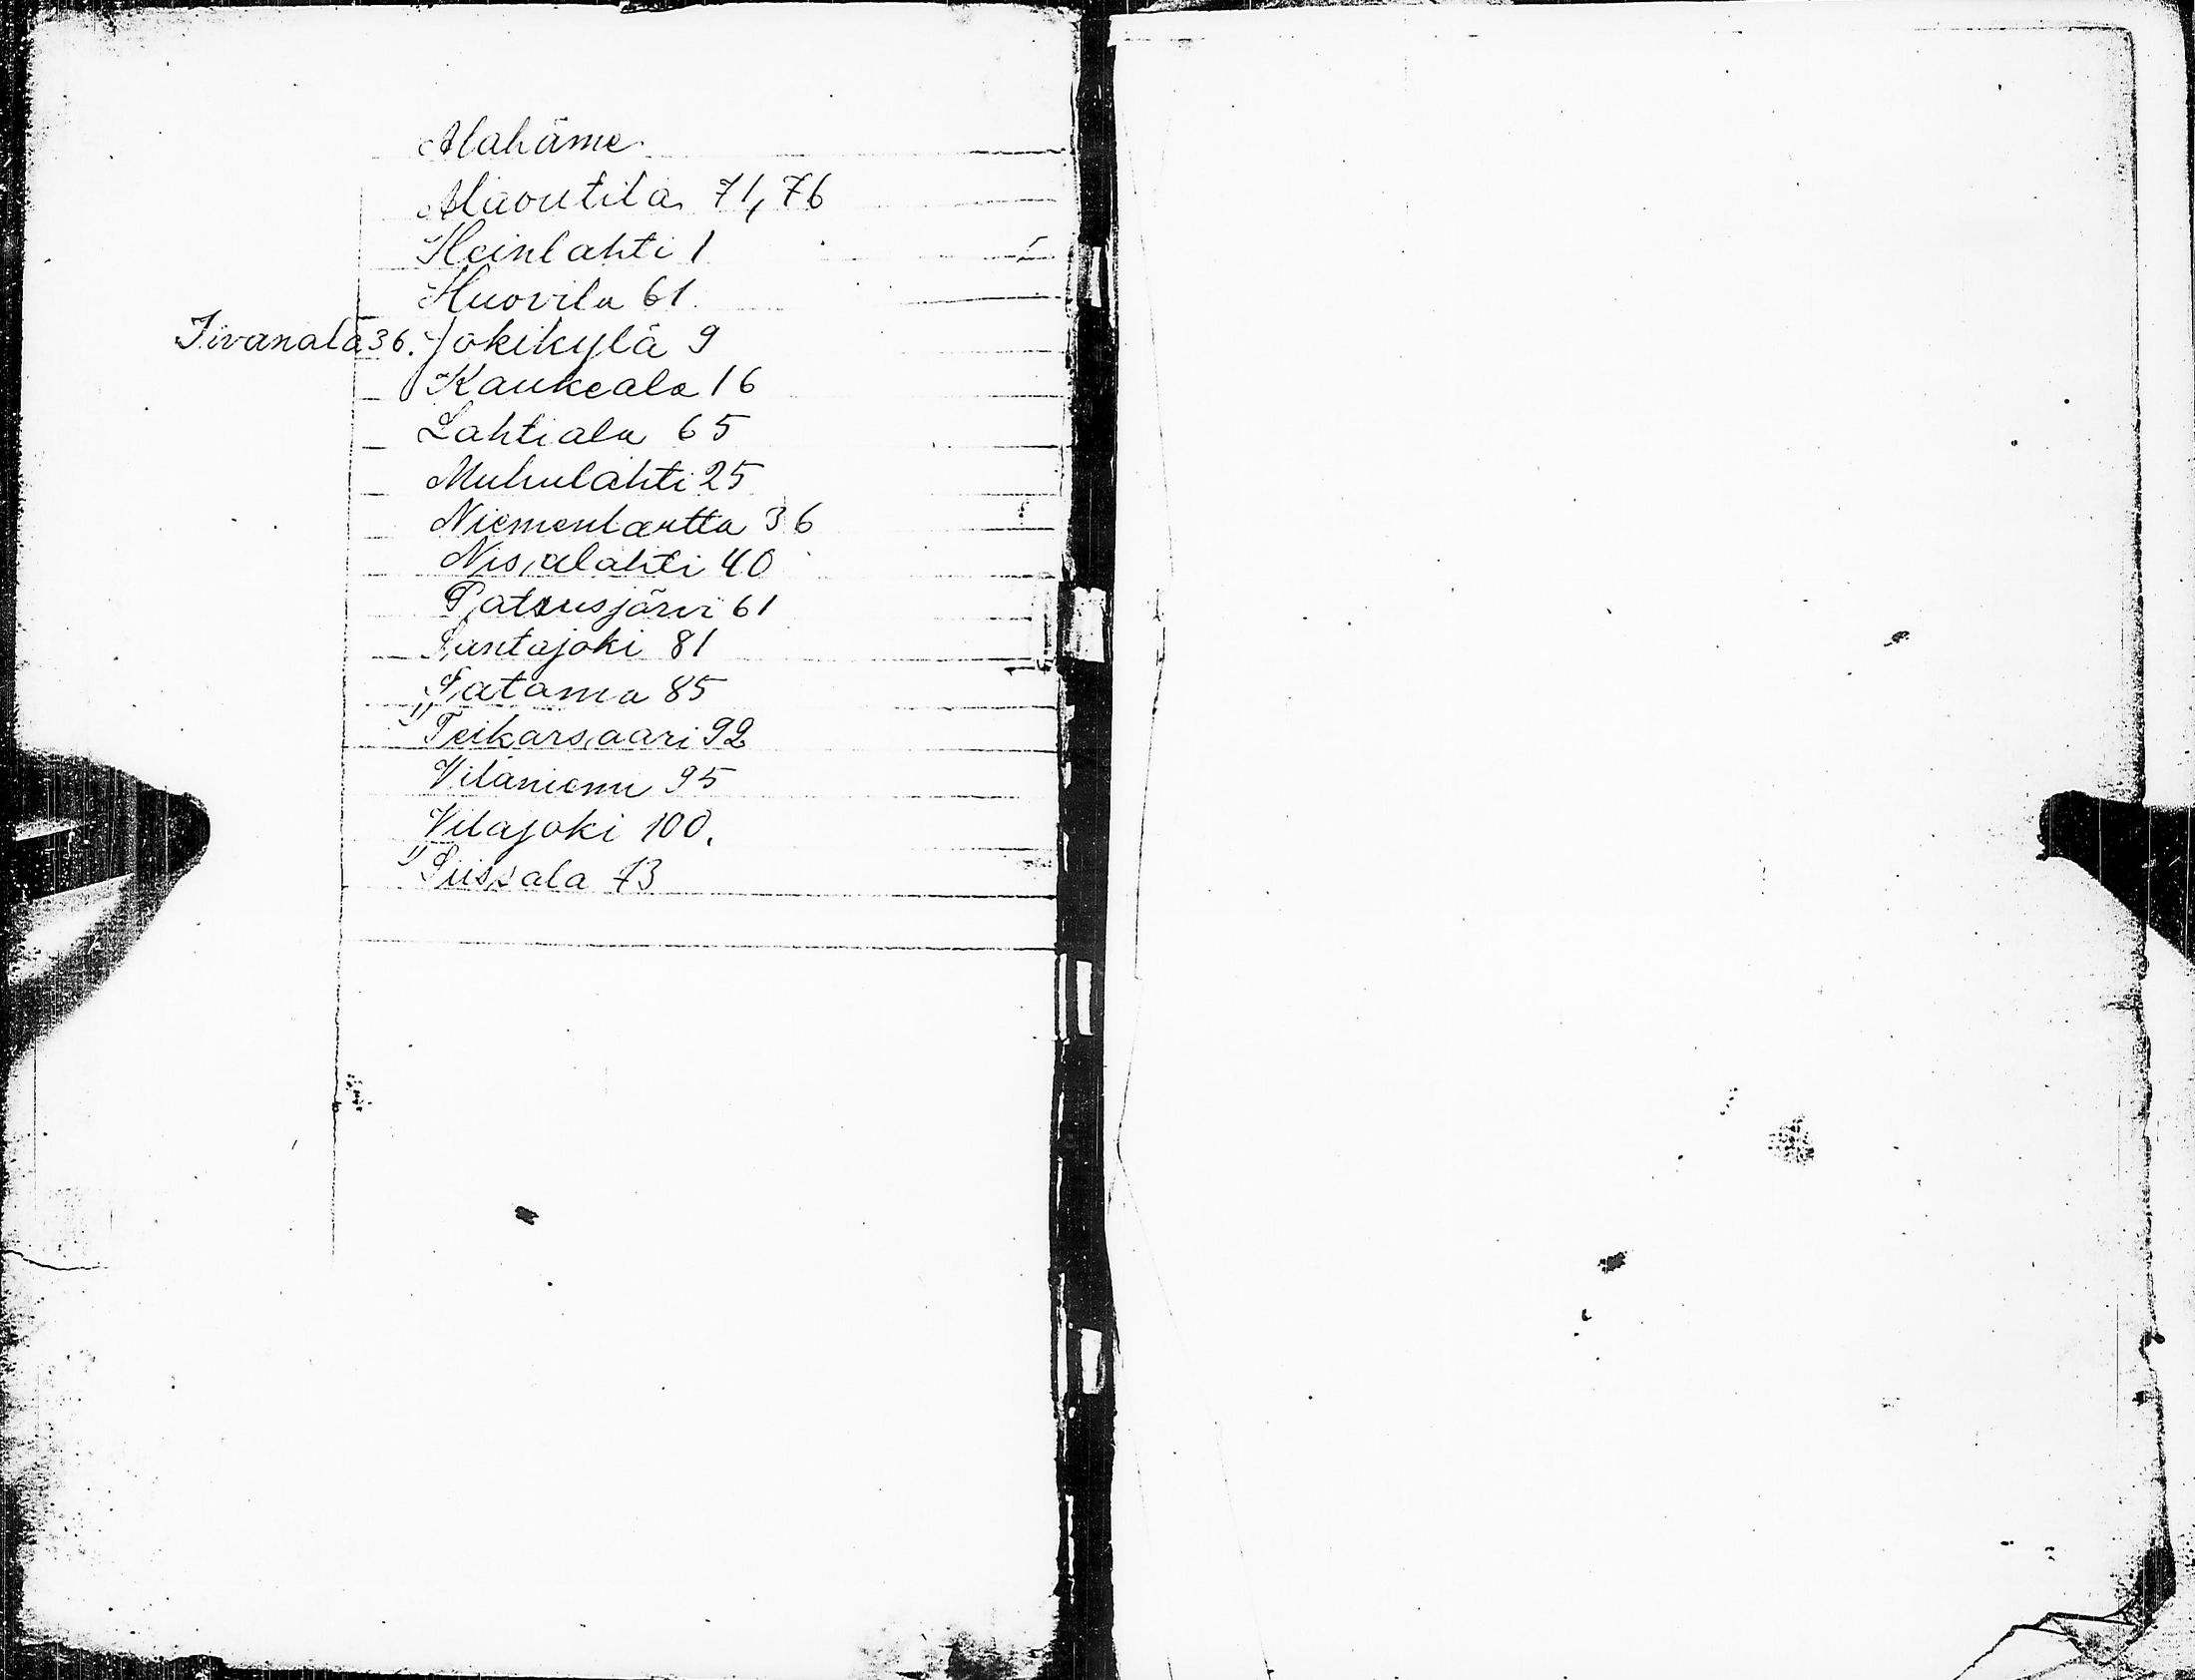 Alahäme
Alaoutila 71, 76
Heinlahti 1
Huovila 61.
Iivanala 36. Jokikylä 9
Kaukeala 16
Lahtiala 65
Muhulahti 25
Niemenlautta 36
Nisalahti 40
Patsusjärvi 61
Santajoki 81
Satama 85
" Teikarsaari 92
Viläniemi 95
Vilajoki 100.
" Sussala 73